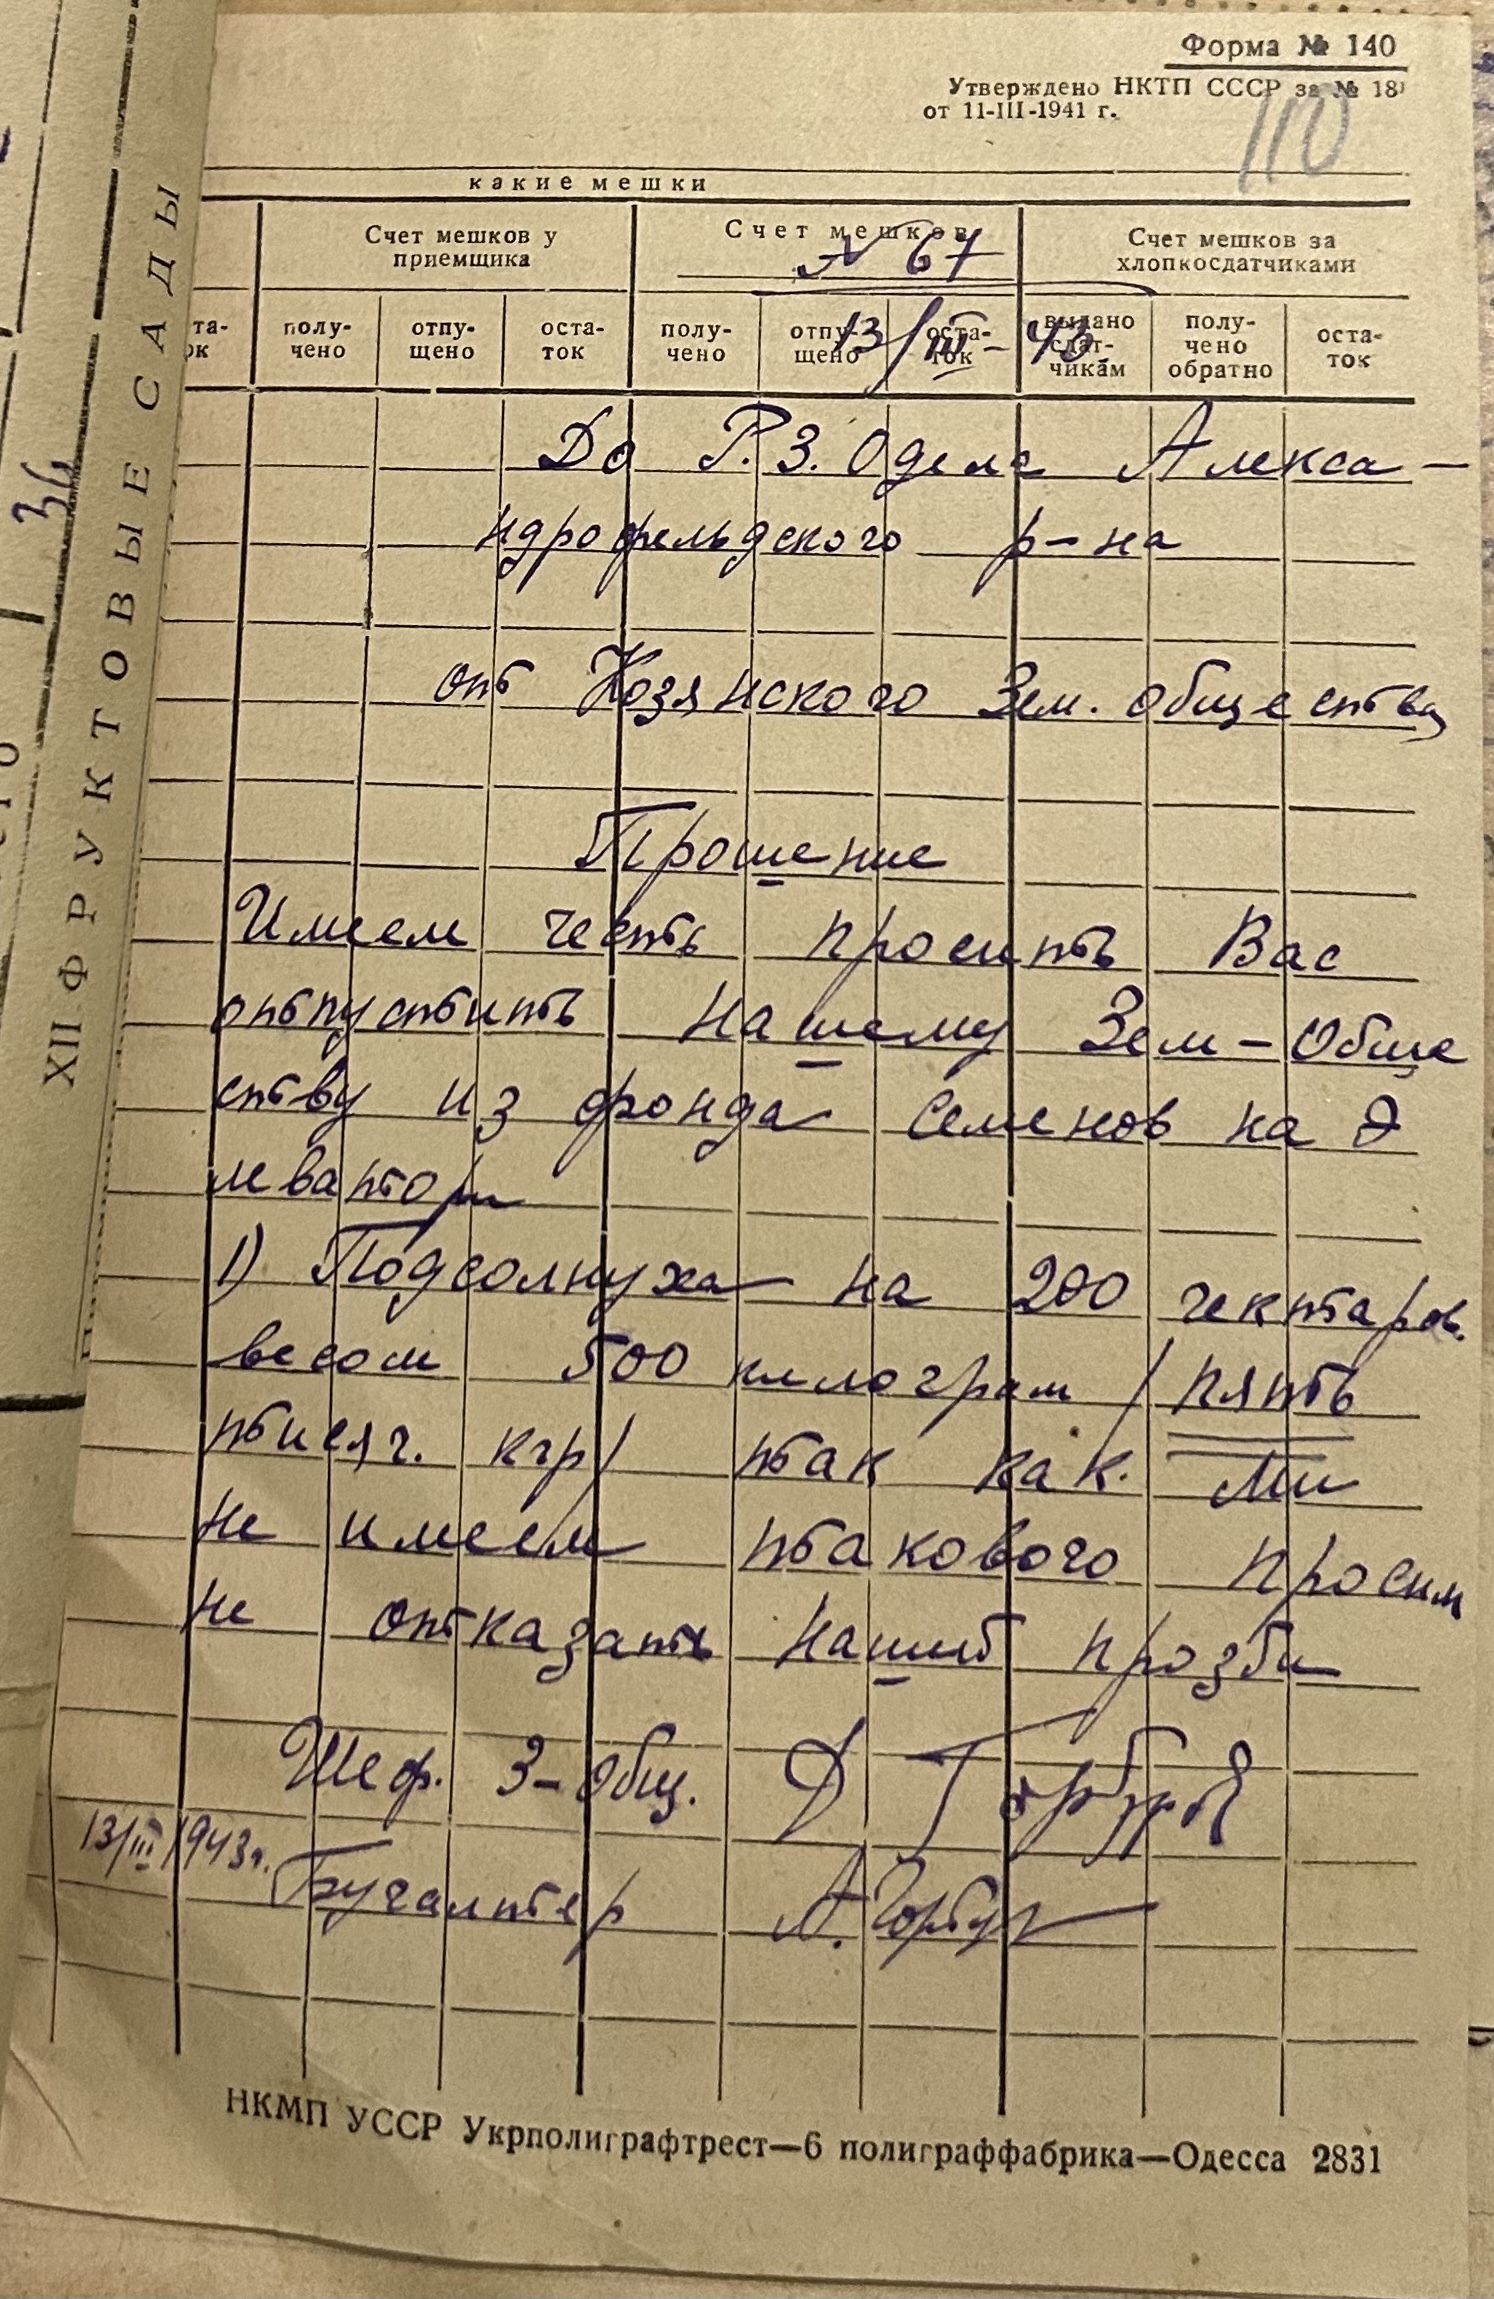 Форма № 140
Утверждено НКТП СССР за № 18
от 11-III-1941 г.
110
какие мешки
Счет мешков у приемщика
Счет мешков
Счет мешков за хлопкосдатчиками
N 67
та-
ок
полу-
чено
отпу-
щено
оста-
ток
полу-
чено
отпу-
щено
оста-
ток
выдано
сдат-
чикам
полу-
чено
обратно
оста-
ток
13/III-43
До Р.З. Одела Алекса-
ндрофельдского р-на
от Козянского Зем. общества
Прошение
Имеем честь просить Вас
отпустить нашему Зем-Обще
ству из фонда семенов на Э
леватори
1) Подсолнуха на 200 гектаров.
весом 500 килограм /пять
тисяч. кгр/ так как. Ми
не имеем такового просим
не отказать нашей прозби
Шеф. З-общ. Д Горбуров
13/III 1943 г.
Бугалтер А. Горбур
НКМП УССР Укрполиграфтрест—6 полиграффабрика—Одесса 2831
XII ФРУКТОВЫЕ САДЫ
36